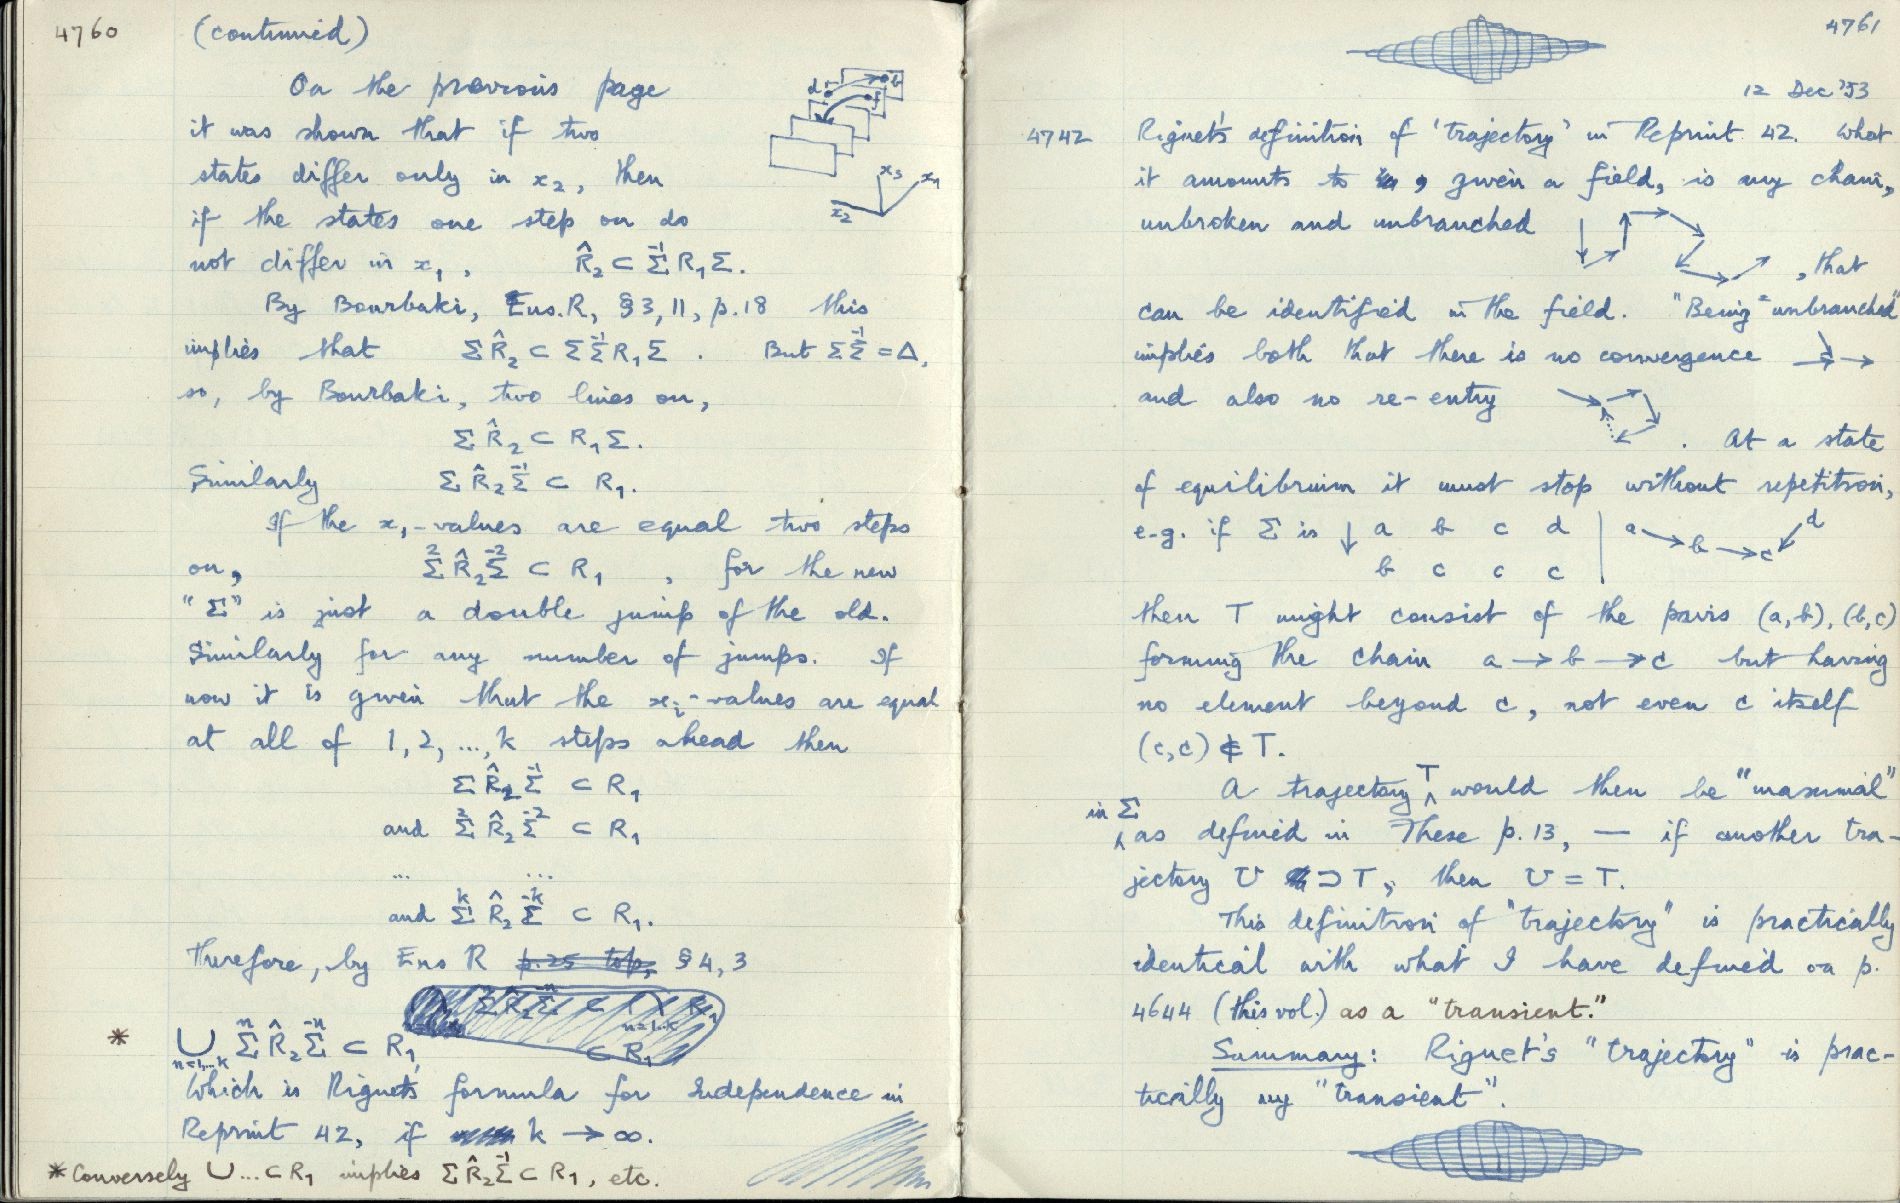 4760
(continued)
On the previous page
it was shown that if two
states differ only in x₂, then
if the states one step on do
not differ in x₁, R̂₂ ⊂ Σ⁻¹ R₁ Σ.
d b f
x₃ x₁ x₂
By Bourbaki, Ens. R, §3, 11, p. 18 this
implies that Σ R̂₂ ⊂ Σ Σ⁻¹ R₁ Σ. But Σ Σ⁻¹ = Δ,
so, by Bourbaki, two lines on,
Σ R̂₂ ⊂ R₁ Σ.
Similarly Σ R̂₂ Σ⁻¹ ⊂ R₁.
If the x₁-values are equal two steps
on, Σ² R̂₂ Σ⁻² ⊂ R₁, for the new
"Σ" is just a double jump of the old.
Similarly for any number of jumps. If
now it is given that the xᵢ-values are equal
at all of 1, 2, ..., k steps ahead then
Σ R̂₂ Σ⁻¹ ⊂ R₁
and Σ² R̂₂ Σ⁻² ⊂ R₁
... ...
and Σᵏ R̂₂ Σ⁻ᵏ ⊂ R₁.
Therefore, by Ens R p. 25 top, §4, 3
* ⋃ n=1,..k Σⁿ R̂₂ Σ⁻ⁿ ⊂ R₁,
Which is Riguet's formula for Independence in
Reprint 42, if k → ∞.
* Conversely ∪ ... ⊂ R₁ implies Σ R̂₂ Σ⁻¹ ⊂ R₁, etc.
4761
12 Dec '53
4742 Riguet's definition of 'trajectory' in Reprint 42. What
it amounts to, given a field, is any chain,
unbroken and unbranched
, that
can be identified in the field. "Being "unbranched"
implies both that there is no convergence
and also no re-entry
. At a state
of equilibrium it must stop without repetition,
e.g. if Σ is ↓ a b c d | a → b → c ← d
b c c c
then T might consist of the pairs (a,b), (b,c)
forming the chain a → b → c but having
no element beyond c, not even c itself
(c,c) ∉ T.
A trajectory T would then be "maximal"
in Σ
as defined in These p. 13, — if another tra-
jectory U ⊃ T, then U = T.
This definition of "trajectory" is practically
identical with what I have defined on p.
4644 (this vol.) as a "transient."
Summary: Riguet's "trajectory" is prac-
tically my "transient".